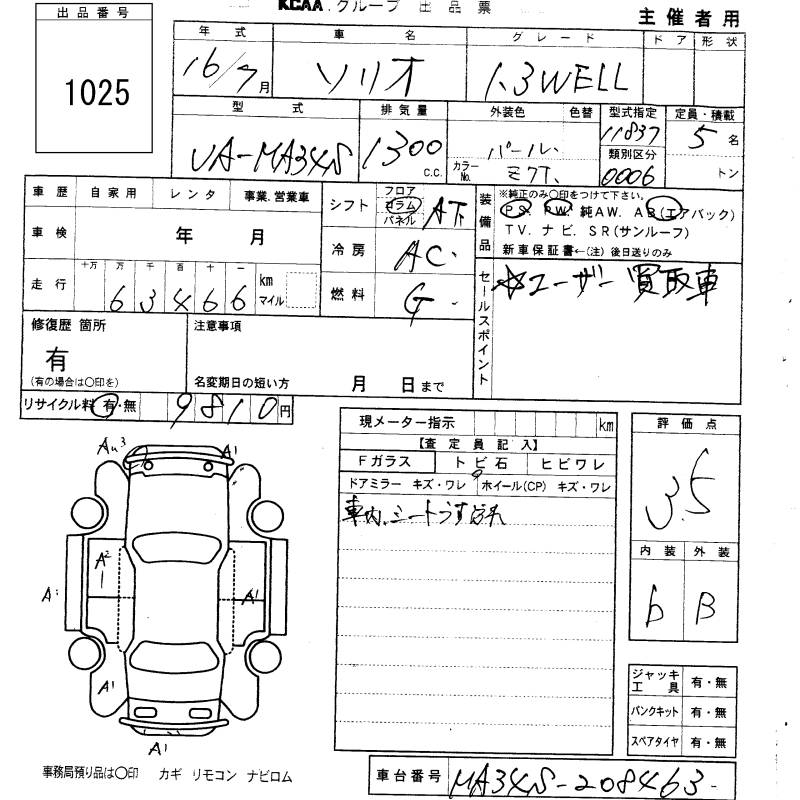 KCAA.グループ 出品票
主催者用
出品番号
1025
年式 車名 グレード ドア 形状
16/7月 ソリオ 1.3WELL
型式 排気量 外装色 色替 型式指定 定員・積載
UA-MA34S 1300 c.c. パール. 11837 5名
カラーNo. 類別区分
0006 トン
車歴 自家用 レンタ 事業.営業車
シフト フロア コラム パネル AT
装備品 ※純正のみ〇印をつけて下さい。
PS. PW. 純AW. AB(エアバック)
TV. ナビ. SR(サンルーフ)
新車保証書←(注)後日送りのみ
車検 年 月
冷房 AC.
走行 十万 万 千 百 十 一
63466 km マイル
燃料 G.
セールスポイント ☆ユーザー買取車
修復歴 箇所 注意事項
有
(有の場合は〇印を) 名変期日の短い方 月 日まで
リサイクル料 有・無 9810円
現メーター指示 km
【査定員記入】
Fガラス トビ石 ヒビワレ
ドアミラー キズ・ワレ ホイール(CP) キズ・ワレ
車内.シートうす汚れ
評価点
3.5
内装 外装
b B
AU3 A1
A2
A1 A1
A1
A1
ジャッキ工具 有・無
パンクキット 有・無
スペアタイヤ 有・無
事務局預り品は〇印 カギ リモコン ナビロム
車台番号 MA34S-208463-